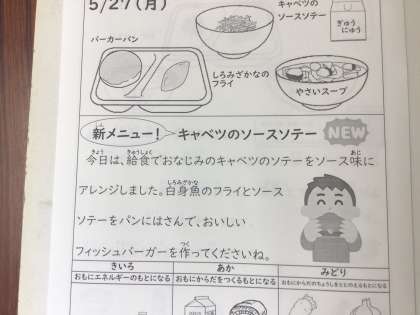 5/27(月)
キャベツの
ソースソテー
ぎゅう
にゅう
バーガーパン
しろみざかなの
フライ
やさいスープ
しん
新メニュー! キャベツのソースソテー NEW
きょう きゅうしょく あじ
今日は、給食でおなじみのキャベツのソテーをソース味に
しろみざかな
アレンジしました。白身魚のフライとソース
ソテーをパンにはさんで、おいしい
つく
フィッシュバーガーを作ってくださいね。
きいろ あか みどり
おもにエネルギーのもとになる おもにからだをつくるもとになる おもにからだのちょうしをととのえるもとになる